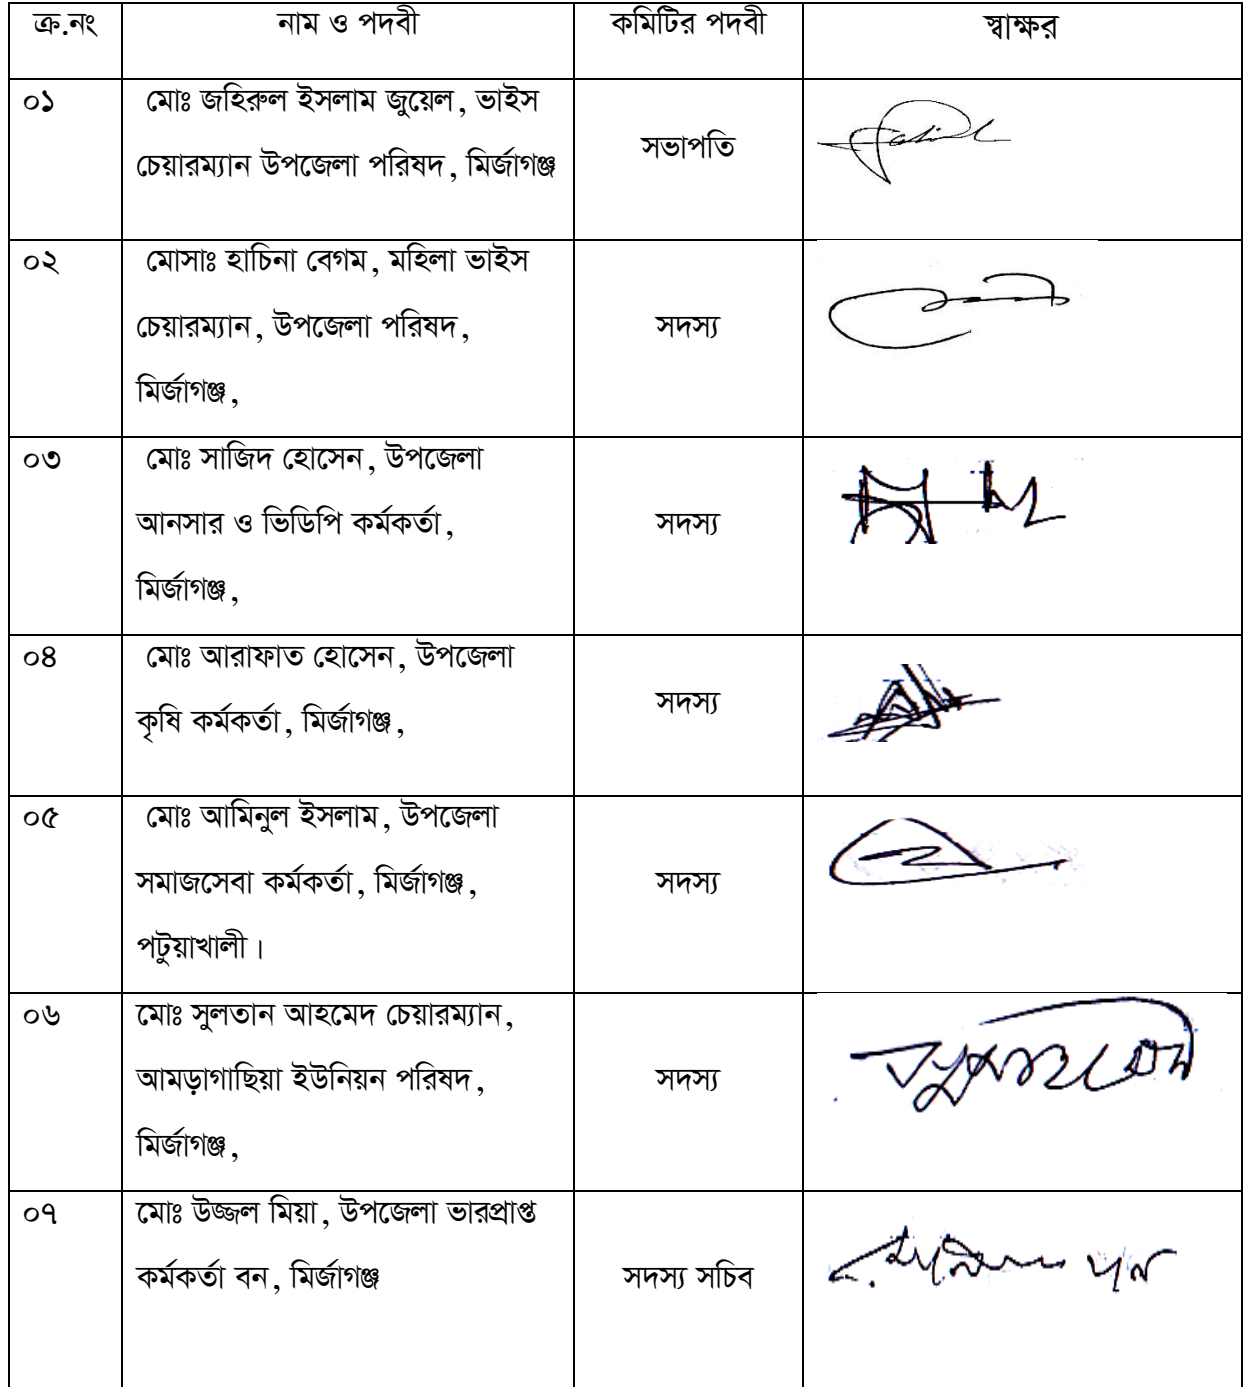 ক্র.নং নাম ও পদবী কমিটির পদবী স্বাক্ষর
০১ মোঃ জহিরুল ইসলাম জুয়েল, ভাইস
চেয়ারম্যান উপজেলা পরিষদ, মির্জাগঞ্জ
সভাপতি
০২ মোসাঃ হাচিনা বেগম, মহিলা ভাইস
চেয়ারম্যান, উপজেলা পরিষদ,
মির্জাগঞ্জ,
সদস্য
০৩ মোঃ সাজিদ হোসেন, উপজেলা
আনসার ও ভিডিপি কর্মকর্তা,
মির্জাগঞ্জ,
সদস্য
০৪ মোঃ আরাফাত হোসেন, উপজেলা
কৃষি কর্মকর্তা, মির্জাগঞ্জ,
সদস্য
০৫ মোঃ আমিনুল ইসলাম, উপজেলা
সমাজসেবা কর্মকর্তা, মির্জাগঞ্জ,
পটুয়াখালী।
সদস্য
০৬ মোঃ সুলতান আহমেদ চেয়ারম্যান,
আমড়াগাছিয়া ইউনিয়ন পরিষদ,
মির্জাগঞ্জ,
সদস্য
০৭ মোঃ উজ্জল মিয়া, উপজেলা ভারপ্রাপ্ত
কর্মকর্তা বন, মির্জাগঞ্জ
সদস্য সচিব